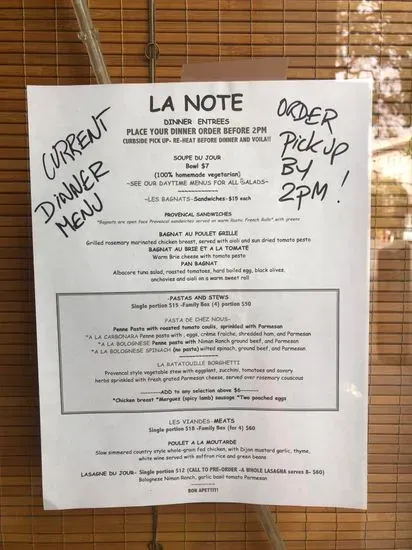 CURRENT
DINNER
MENU
ORDER
Pick UP
BY
2PM!
LA NOTE
DINNER ENTREES
PLACE YOUR DINNER ORDER BEFORE 2PM
CURBSIDE PICK UP- RE-HEAT BEFORE DINNER AND VOILA!!
SOUPE DU JOUR
Bowl $7
(100% homemade vegetarian)
~SEE OUR DAYTIME MENUS FOR ALL SALADS~
~LES BAGNATS-Sandwiches-$15 each
PROVENCAL SANDWICHES
*Bagnats are open face Provencal sandwiches served on warm Rustic French Rolls* with greens
BAGNAT AU POULET GRILLE
Grilled rosemary marinated chicken breast, served with aioli and sun dried tomato pesto
BAGNAT AU BRIE ET A LA TOMATE
Warm Brie cheese with tomato pesto
PAN BAGNAT
Albacore tuna salad, roasted tomatoes, hard boiled egg, black olives,
anchovies and aioli on a warm sweet roll
-PASTAS AND STEWS
Single portion $15 -Family Box (4) portion $50
PASTA DE CHEZ NOUS-
Penne Pasta with roasted tomato coulis, sprinkled with Parmesan
*A LA CARBONARA Penne pasta with , eggs, crème fraiche, shredded ham, and Parmesan
*A LA BOLOGNESE Penne pasta with Niman Ranch ground beef, and Parmesan
*A LA BOLOGNESE SPINACH (no pasta) wilted spinach, ground beef, and Parmesan
LA RATATOUILLE BORGHETTI
Provencal style vegetable stew with eggplant, zucchini, tomatoes and savory
herbs sprinkled with fresh grated Parmesan cheese, served over rosemary couscous
--------ADD to any selection above $6--------
*Chicken breast *Merguez (spicy lamb) sausage *Two poached eggs
LES VIANDES-MEATS
Single portion $18 -Family Box (for 4) $60
POULET A LA MOUTARDE
Slow simmered country style whole-grain fed chicken, with Dijon mustard garlic, thyme,
white wine served with saffron rice and green beans
LASAGNE DU JOUR- Single portion $12 (CALL TO PRE-ORDER -A WHOLE LASAGNA serves 8- $60)
Bolognese Niman Ranch, garlic basil tomato Parmesan
BON APETIT!!